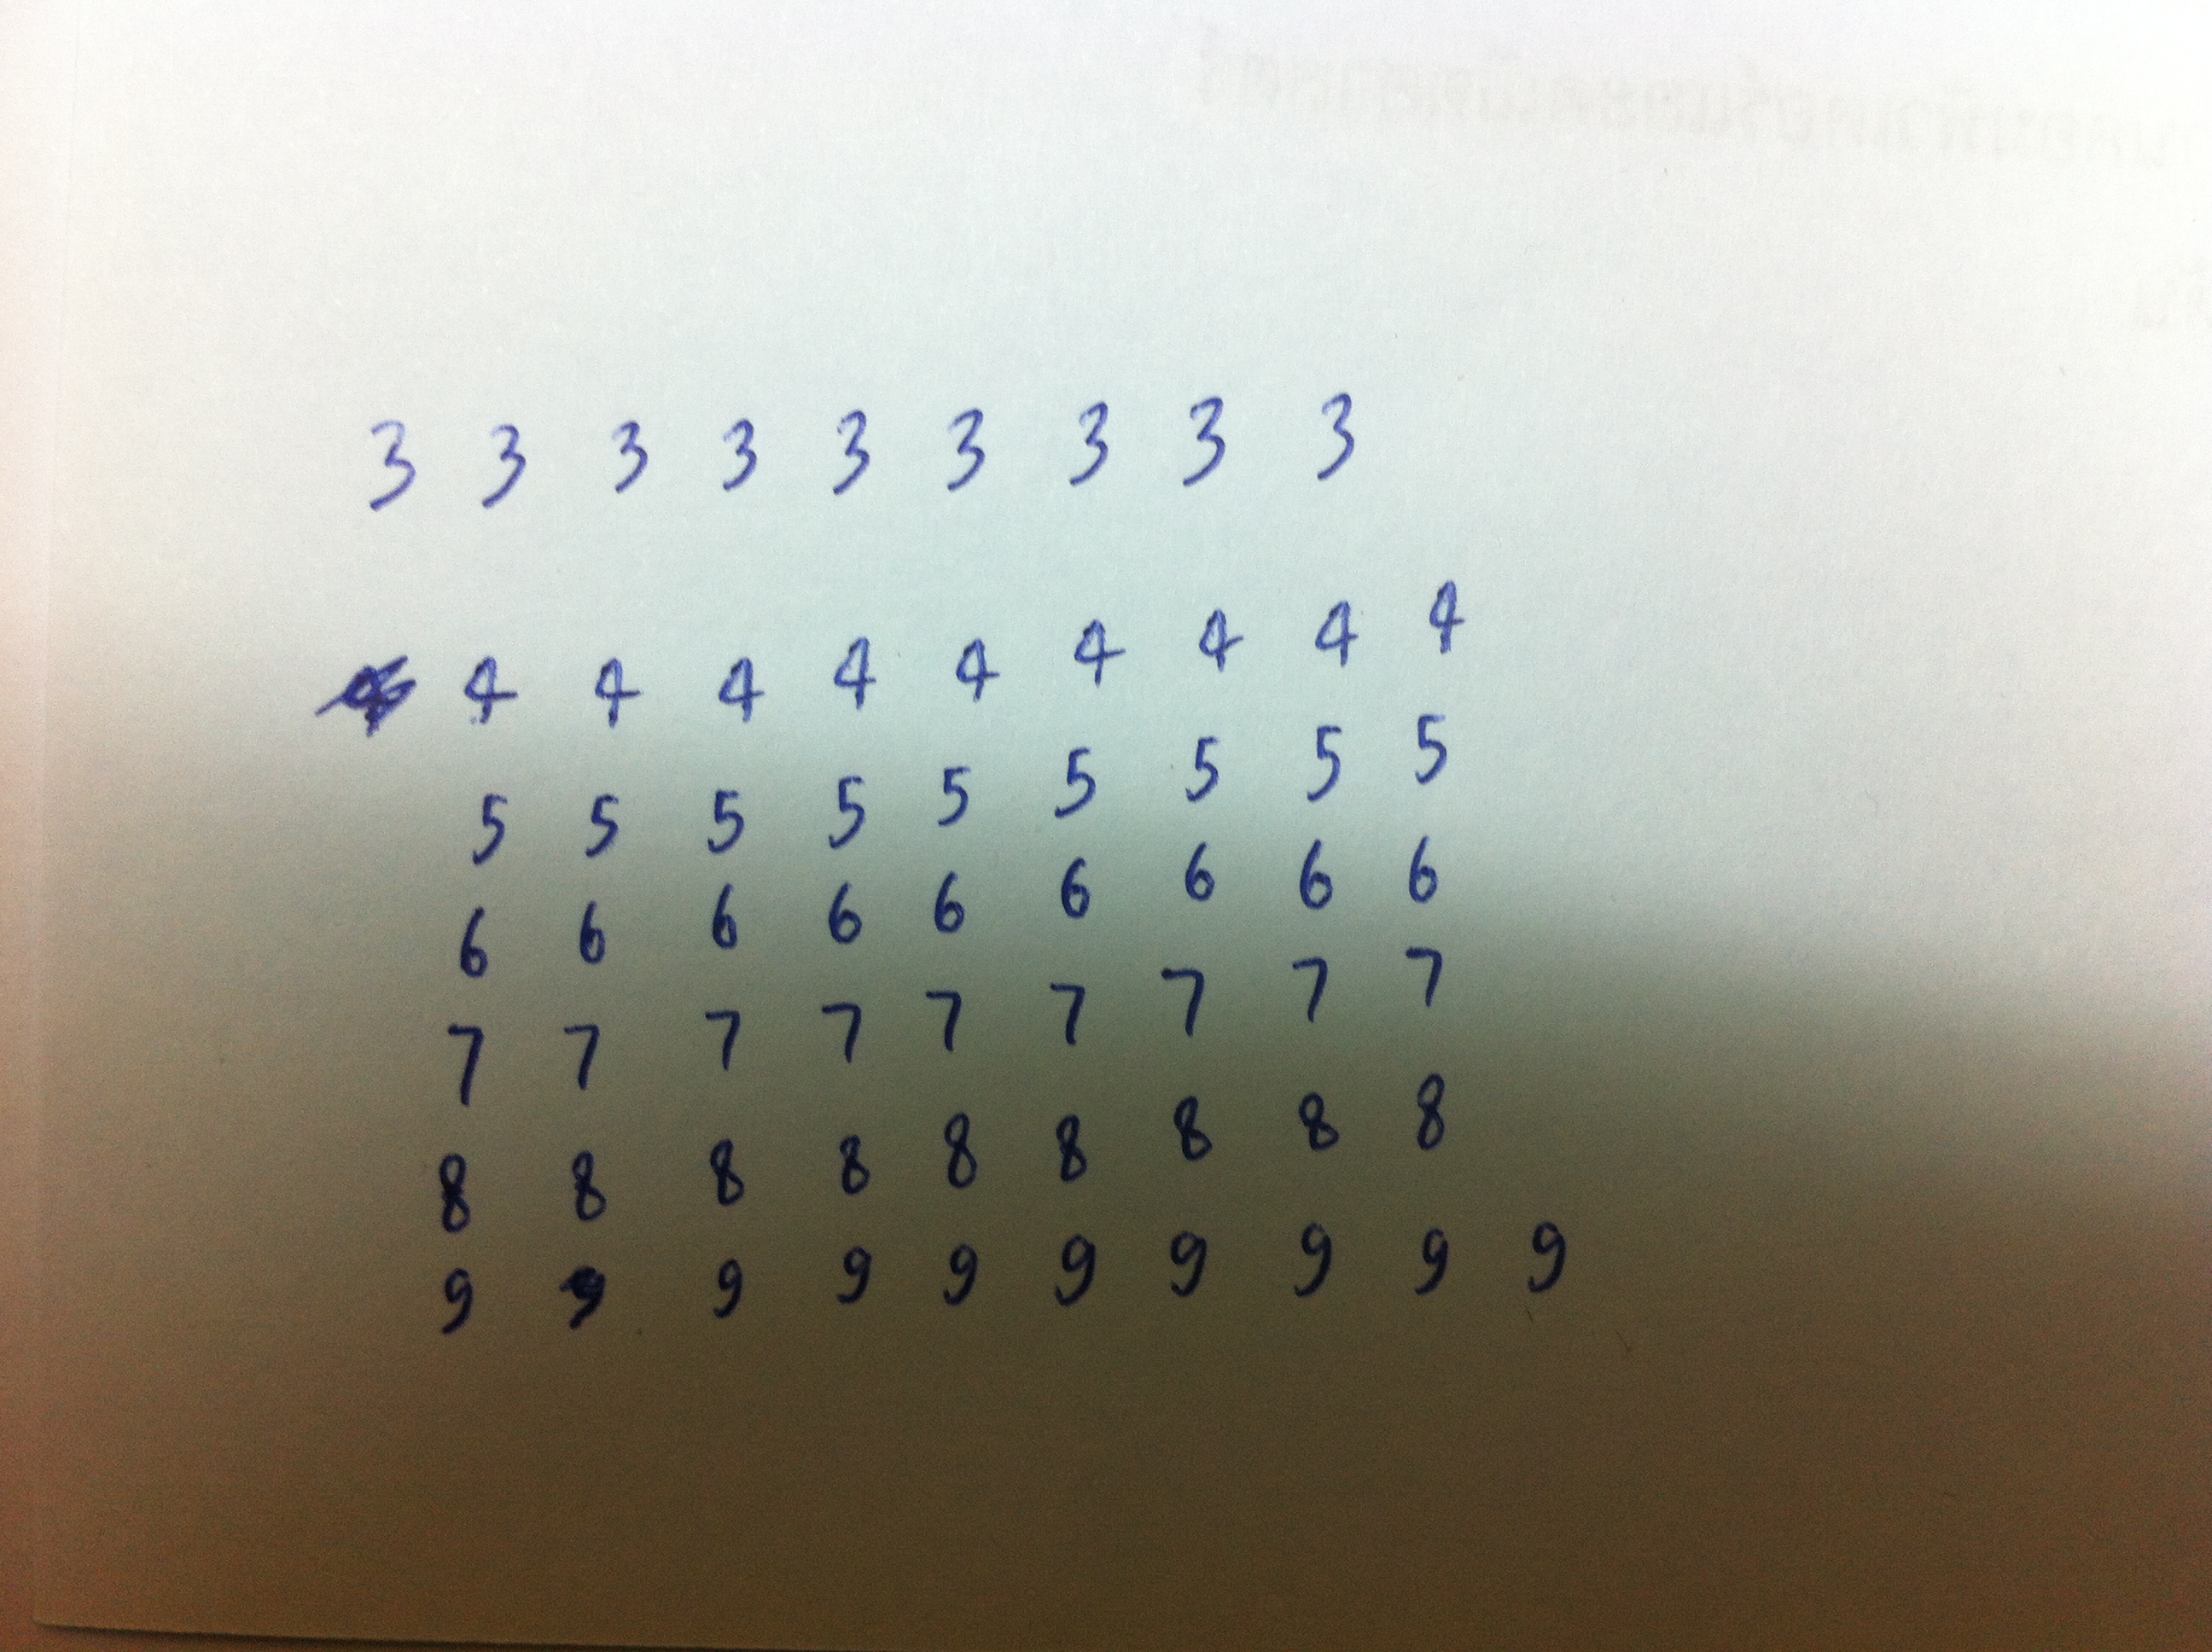 3 3 3 3 3 3 3 3 3
4 4 4 4 4 4 4 4 4
5 5 5 5 5 5 5 5 5
6 6 6 6 6 6 6 6 6
7 7 7 7 7 7 7 7 7
8 8 8 8 8 8 8 8 8
9 9 9 9 9 9 9 9 9 9